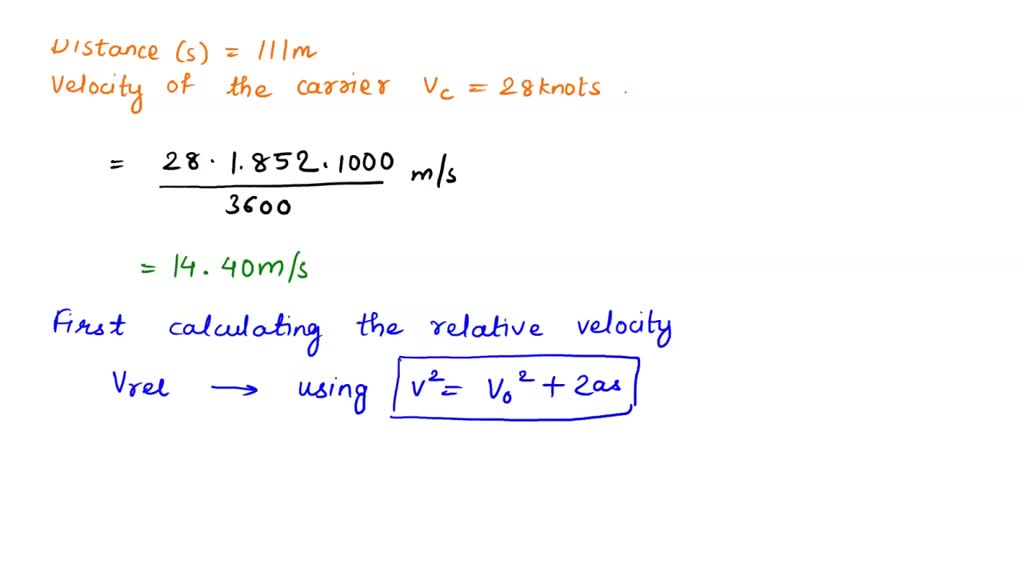 Distance (s) = 111m
Velocity of the carrier Vc = 28knots .
= 28 · 1.852 · 1000 / 3600 m/s
= 14.40m/s
First calculating the relative velocity
Vrel → using v² = V₀² + 2as